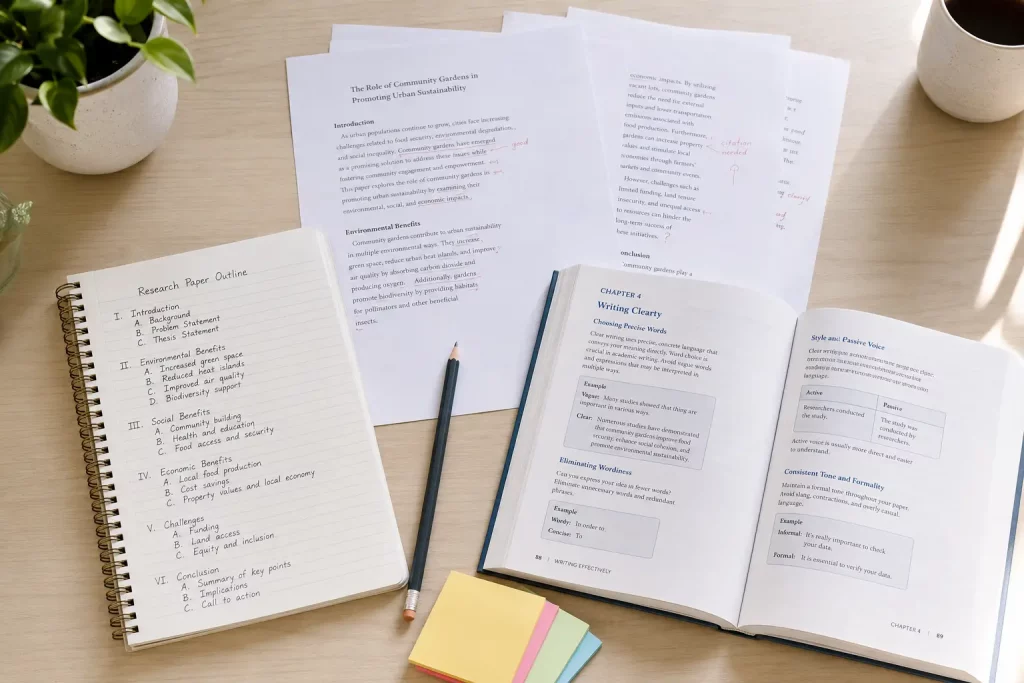 Research Paper Outline
I. Introduction
A. Background
B. Problem Statement
C. Thesis Statement
II. Environmental Benefits
A. Increased green space
B. Reduced heat islands
C. Improved air quality
D. Biodiversity support
III. Social Benefits
A. Community building
B. Health and education
C. Food access and security
IV. Economic Benefits
A. Local food production
B. Cost savings
C. Property values and local economy
V. Challenges
A. Funding
B. Land access
C. Equity and inclusion
VI. Conclusion
A. Summary of key points
B. Implications
C. Call to action
The Role of Community Gardens in
Promoting Urban Sustainability
Introduction
As urban populations continue to grow, cities face increasing
challenges related to food security, environmental degradation,
and social inequality. Community gardens have emerged
as a promising solution to address these issues while
good
fostering community engagement and empowerment.
This paper explores the role of community gardens in
promoting urban sustainability by examining their
environmental, social, and economic impacts.
Environmental Benefits
Community gardens contribute to urban sustainability
in multiple environmental ways. They increase
green space, reduce urban heat islands, and improve
air quality by absorbing carbon dioxide and
producing oxygen. Additionally, gardens
promote biodiversity by providing habitats
for pollinators and other beneficial
insects.
economic impacts. By utilizing
vacant lots, community gardens
reduce the need for external
inputs and lower transportation
emissions associated with
food production. Furthermore,
gardens can increase property
values and stimulate local
economies through farmers'
markets and community events.
citation
needed
However, challenges such as
limited funding, land tenure
insecurity, and unequal access
to resources can hinder the
long-term success of
these initiatives. ?
onclusion
ommunity gardens play a
CHAPTER 4
Writing Clearty
Choosing Precise Words
Clear writing uses precise, concrete language that
conveys your meaning directly. Word choice is
crucial in academic writing. Avoid vague words
and expressions that may be interpreted in
multiple ways.
Example
Vague: Many studies showed that thing are
important in various ways.
Clear: Numerous studies have demonstrated
that community gardens improve food
security, enhance social cohesion, and
promote environmental sustainability.
Eliminating Wordiness
Can you express your idea in fewer words?
Eliminate unnecessary words and redundant
phrases.
Example
Wordy: In order to
Concise: To
88 | WRITING EFFECTIVELY
Style and Passive Voice
language.
Active Passive
Researchers conducted
the study.
The study was
conducted by
researchers.
Active voice is usually more direct and easier
to understand.
Consistent Tone and Formality
Maintain a formal tone throughout your paper.
Avoid slang, contractions, and overly casual
language.
Example
Informal: It's really important to check
your data.
Formal: It is essential to verify your data.
CHAPTER 4 | 89